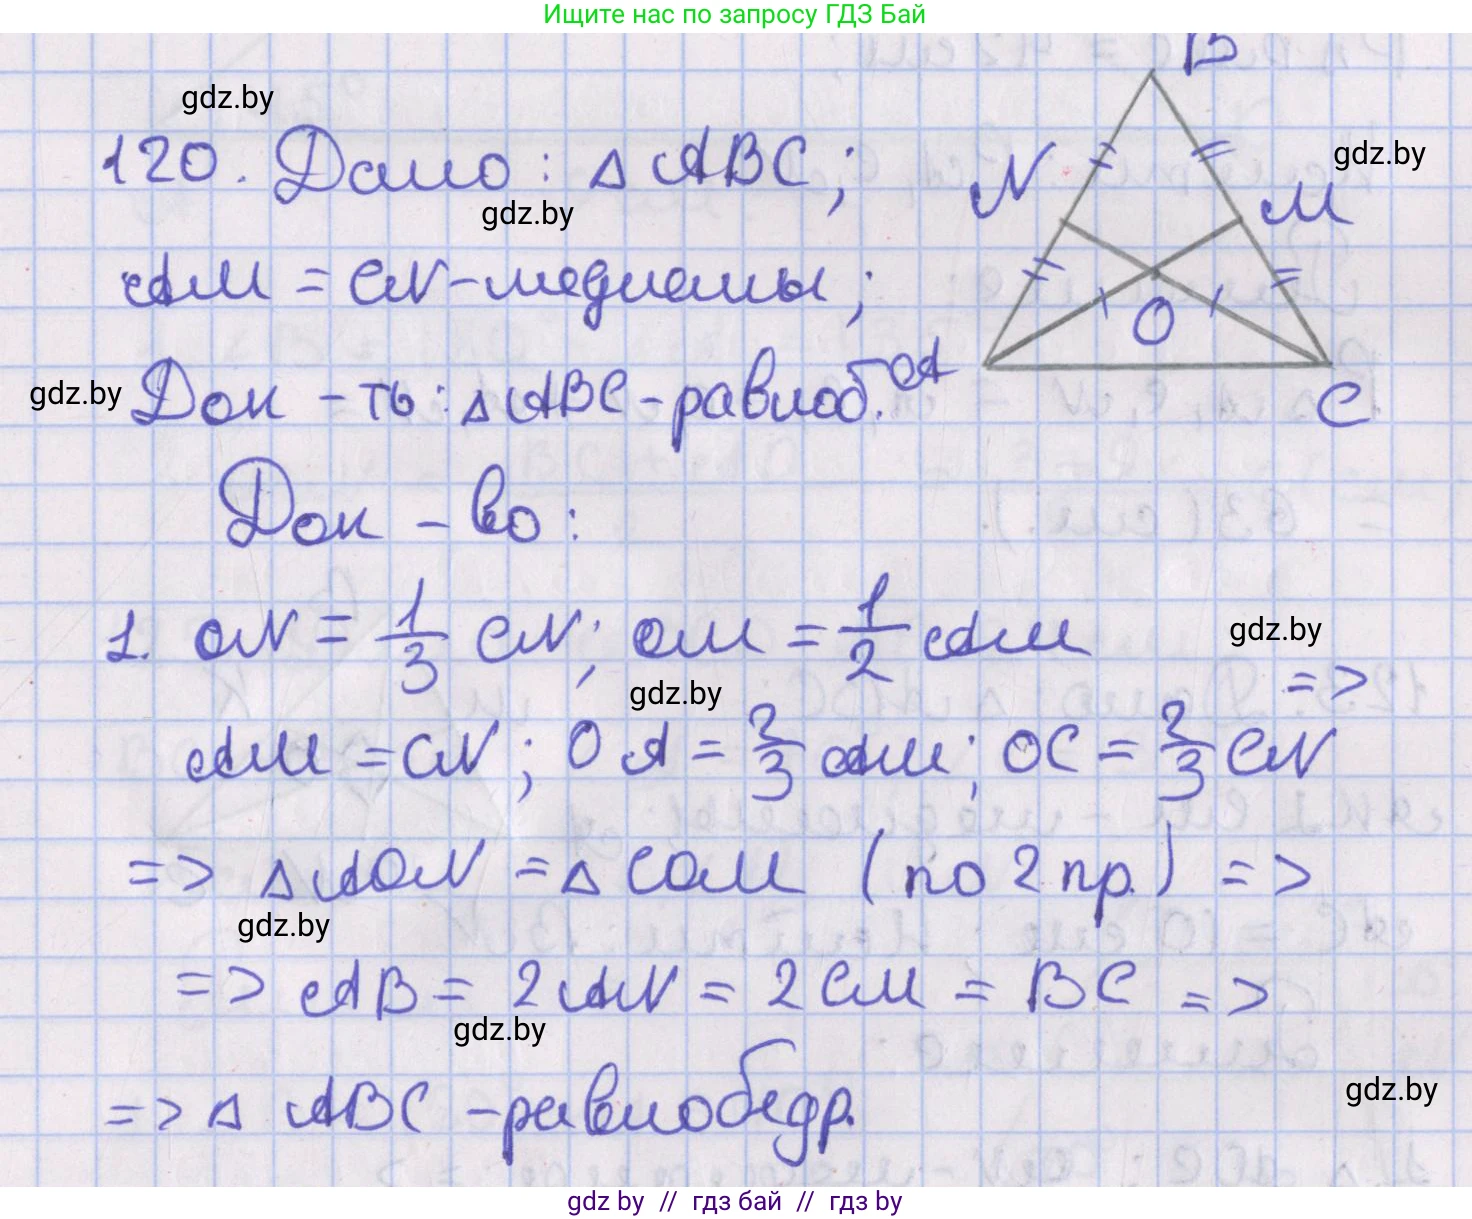 Ищите нас по запросу ГДЗ Бай
B
gdz.by
120. Дано: △ ABC;
gdz.by
gdz.by
N
M
AM = CN - медианы;
O
gdz.by
Док - ть: △ ABC - равноб.
A
C
Док - во:
1. ON = 1/3 CN; OM = 1/2 AM
gdz.by
gdz.by
=>
AM = CN; OA = 2/3 AM; OC = 2/3 CN
=> △ AON = △ COM (по 2 пр.) =>
gdz.by
=> AB = 2AN = 2CM = BC =>
gdz.by
gdz.by
=> △ ABC - равнобедр.
gdz by // гдз бай // гдз by